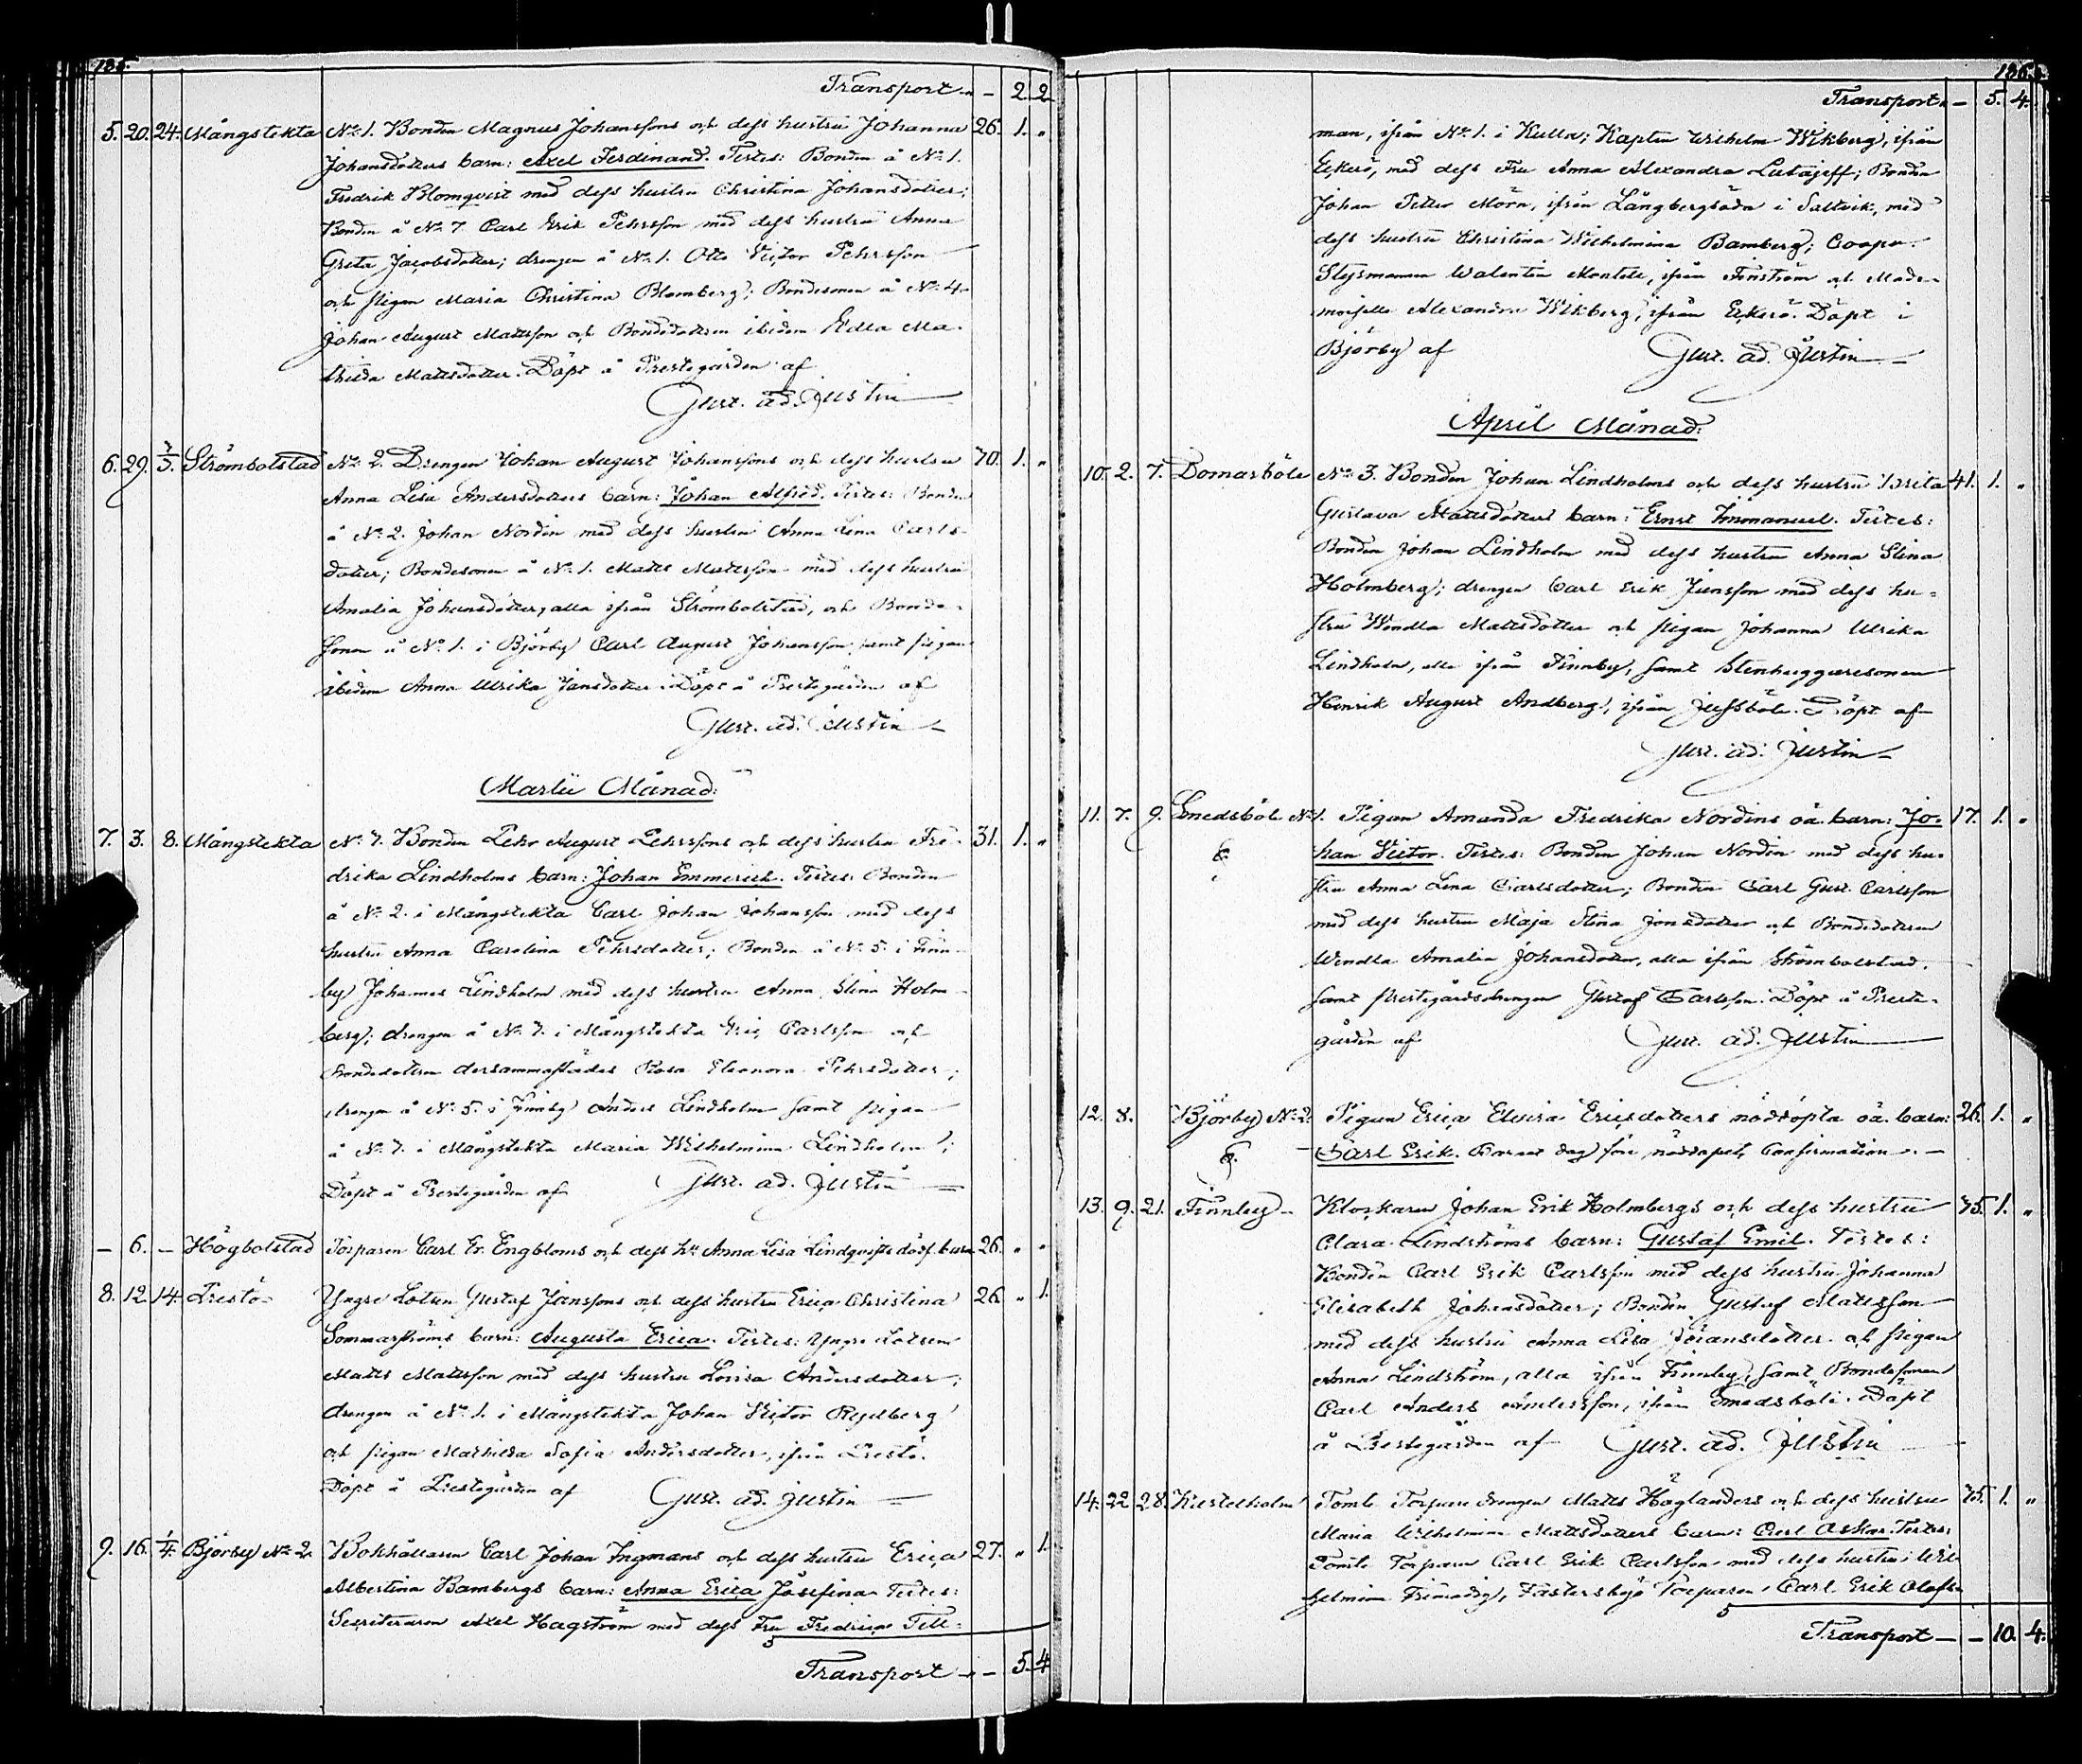 185.
Transport — — 2. 2.
5. 20. 24. Mångstekta No 1. Bonden Magnus Johanssons och dess hustru Johanna 26. 1. "
Johansdotters barn: Axel Ferdinand. Testes: Bonden å No 1.
Fredrik Blomqvist med dess hustru Christina Johansdotter;
Bonden å No 7 Carl Erik Pehrsson med dess hustru Anna
Greta Jacobsdotter; drengen å No 1. Otto Victor Pehrsson
och pigan Maria Christina Blomberg; Bondesonen å No 4.
Johan August Mattsson och Bondedottren ibidem Edla Ma-
thilda Mattsdotter. Döpt å Prestegården af
Gust. ad. Justin
6. 29. 3/3. Strömbolstad No 2. Drengen Johan August Johanssons och dess hustru 70. 1. "
Anna Lisa Andersdotters barn: Johan Alfred. Testes: Bonden
å No 2. Johan Nordin med dess hustru Anna Lena Carls-
dotter; Bondesonen å No 1. Matts Mattsson med dess hustru
Amalia Johansdotter, alla ifrån Strömbolstad, och Bonde-
sonen å No 1. i Björby Carl August Johansson, samt pigan
ibidem Anna Ulrika Jansdotter. Döpt å Prestegården af
Gust. ad. Justin
Martii Månad:
7. 3. 8. Mångstekta No 7. Bonden Pehr August Pehrssons och dess hustru Fre- 31. 1. "
drika Lindholms barn: Johan Emmerick. Testes: Bonden
å No 2. i Mångstekta Carl Johan Johansson med dess
hustru Anna Carolina Pehrsdotter; Bonden å No 5. i Finn-
by Johannes Lindholm med dess hustru Anna Stina Holm-
berg; drengen å No 7. i Mångstekta Eric Carlsson och
Bondedottren dersammastädes Rosa Eleonora Pehrsdotter;
drengen å No 5. i Finnby Anders Lindholm samt pigan
å No 7. i Mångstekta Maria Wilhelmina Lindholm;
Döpt å Prestegården af Gust. ad. Justin
— 6. — Högbolstad Torparen Carl Er. Engbloms och dess hu Anna Lisa Lindqvists dödf. barn 26. " "
8. 12. 14. Prestö Yngre Lotsen Gustaf Janssons och dess hustru Erica Christina 26. " 1.
Sommarströms barn: Augusta Erica. Testes: Yngre Lotsen
Matts Mattsson med dess hustru Lovisa Andersdotter;
drengen å No 1. i Mångstekta Johan Victor Regelberg
och pigan Mathilda Sofia Andersdotter, ifrån Prestö.
Döpt å Prestegården af Gust. ad. Justin
9. 16. 1/4. Björby No 2. Bokhållaren Carl Johan Ingmans och dess hustru Erica 27. " 1.
Albertina Bambergs barn: Anna Erica Josefina. Testes:
Secreteraren Axel Hagström med dess Fru Fredrica Till-
Transport — — 5. 4
186.
Transport — — 5. 4.
man, ifrån No 1. i Kulla; Kapten Wilhelm Wikberg, ifrån
Eckerö, med dess Fru Anna Alexandra Lutajeff; Bonden
Johan Petter Mörn, ifrån Långbergsöda i Saltvik, med
dess hustru Christina Wilhelmina Bamberg;
Walentin Montell, ifrån Finström och Made-
moiselle Alexandra Wikberg, ifrån Eckerö. Döpt i
Björby af Gust. ad. Justin
April Månad:
10. 2. 7. Domarböle No 3. Bonden Johan Lindholms och dess hustru Brita 41. 1. "
Gustava Mattsdotters barn: Ernst Immanuel. Testes:
Bonden Johan Lindholm med dess hustru Anna Stina
Holmberg; drengen Carl Erik Jansson med dess hu-
stru Wendla Mattsdotter och pigan Johanna Ulrika
Lindholm, alla ifrån Finnby, samt Stenhuggaresonen
Henrik August Andberg, ifrån Jussböle. Döpt af
Gust. ad. Justin
11. 7. 9. Smedsböle No 1. Pigan Amanda Fredrika Nordins oä. barn: Jo- 17. 1. "
han Victor. Testes: Bonden Johan Nordin med dess hu-
stru Anna Lena Carlsdotter; Bonden Carl Gust. Carlsson
med dess hustru Maja Stina Jonsdotter och Bondedottren
Wendla Amalia Johansdotter, alla ifrån Strömbolstad,
samt prestegårdsdrengen Gustaf Carlsson. Döpt å Preste-
gården af Gust. ad. Justin
12. 8. Björby No 2. Pigan Erica Elvira Ericsdotters nöddöpta oä. barn: 26. 1. "
Carl Erik. Barnet dog före nöddopets Confirmation. —
13. 9. 21. Finnby Klockaren Johan Erik Holmbergs och dess hustru 35. 1. "
Clara Lindströms barn: Gustaf Emil. Testes:
Bonden Carl Erik Carlsson med dess hustru Johanna
Elisabeth Johansdotter; Bonden Gustaf Mattsson
med dess hustru Anna Lisa Göransdotter och pigan
Anna Lindström, alla ifrån Finnby, samt Bondesonen
Carl Anders Andersson, ifrån Smedsböle. Döpt
å Prestegården af Gust. ad. Justin
14. 22. 28. Kastelholm Tomte Torpare drengen Matts Höglanders och dess hustru 35. 1. "
Maria Wilhelmina Mattsdotters barn: Carl Oskar. Testes:
Tomte Torparen Carl Erik Carlsson med dess hustru Wil-
helmina Torparen Carl Erik Olofs-
Transport — — 10. 4.